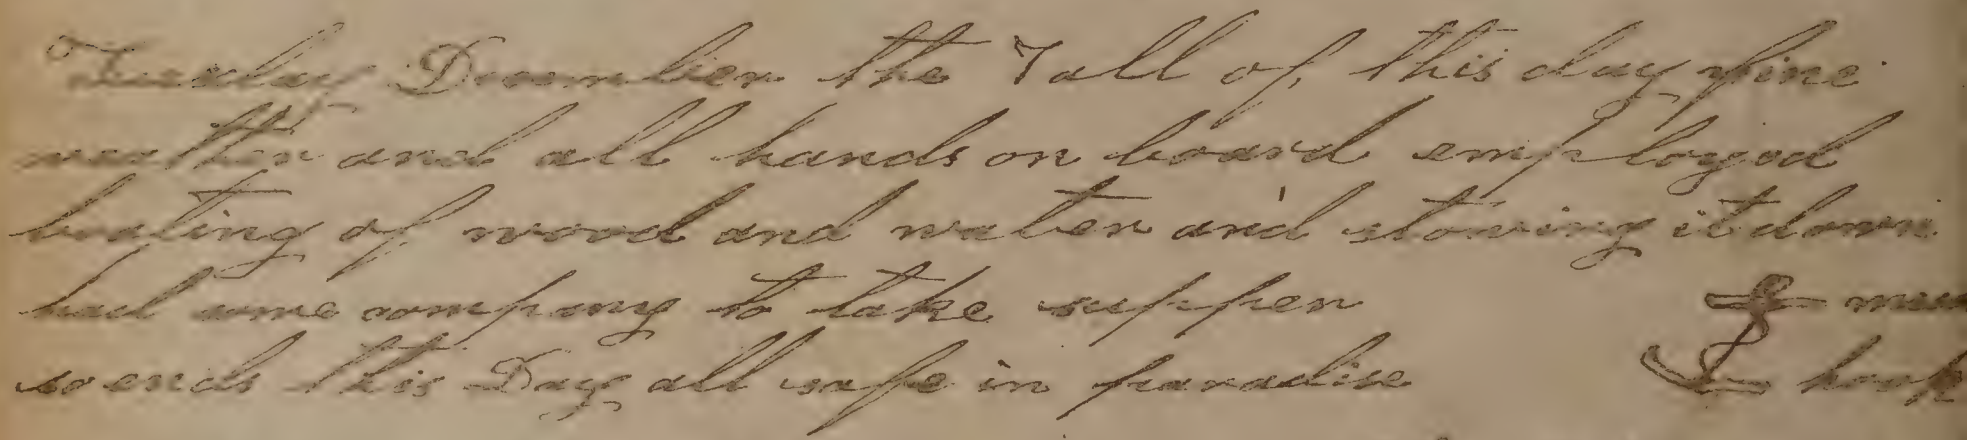 Tuesday December the 7 all of this day fine
weather and all hands on board employed
boating of wood and water and stowing it down
had some company to take supper
so ends this Day all safe in paradise